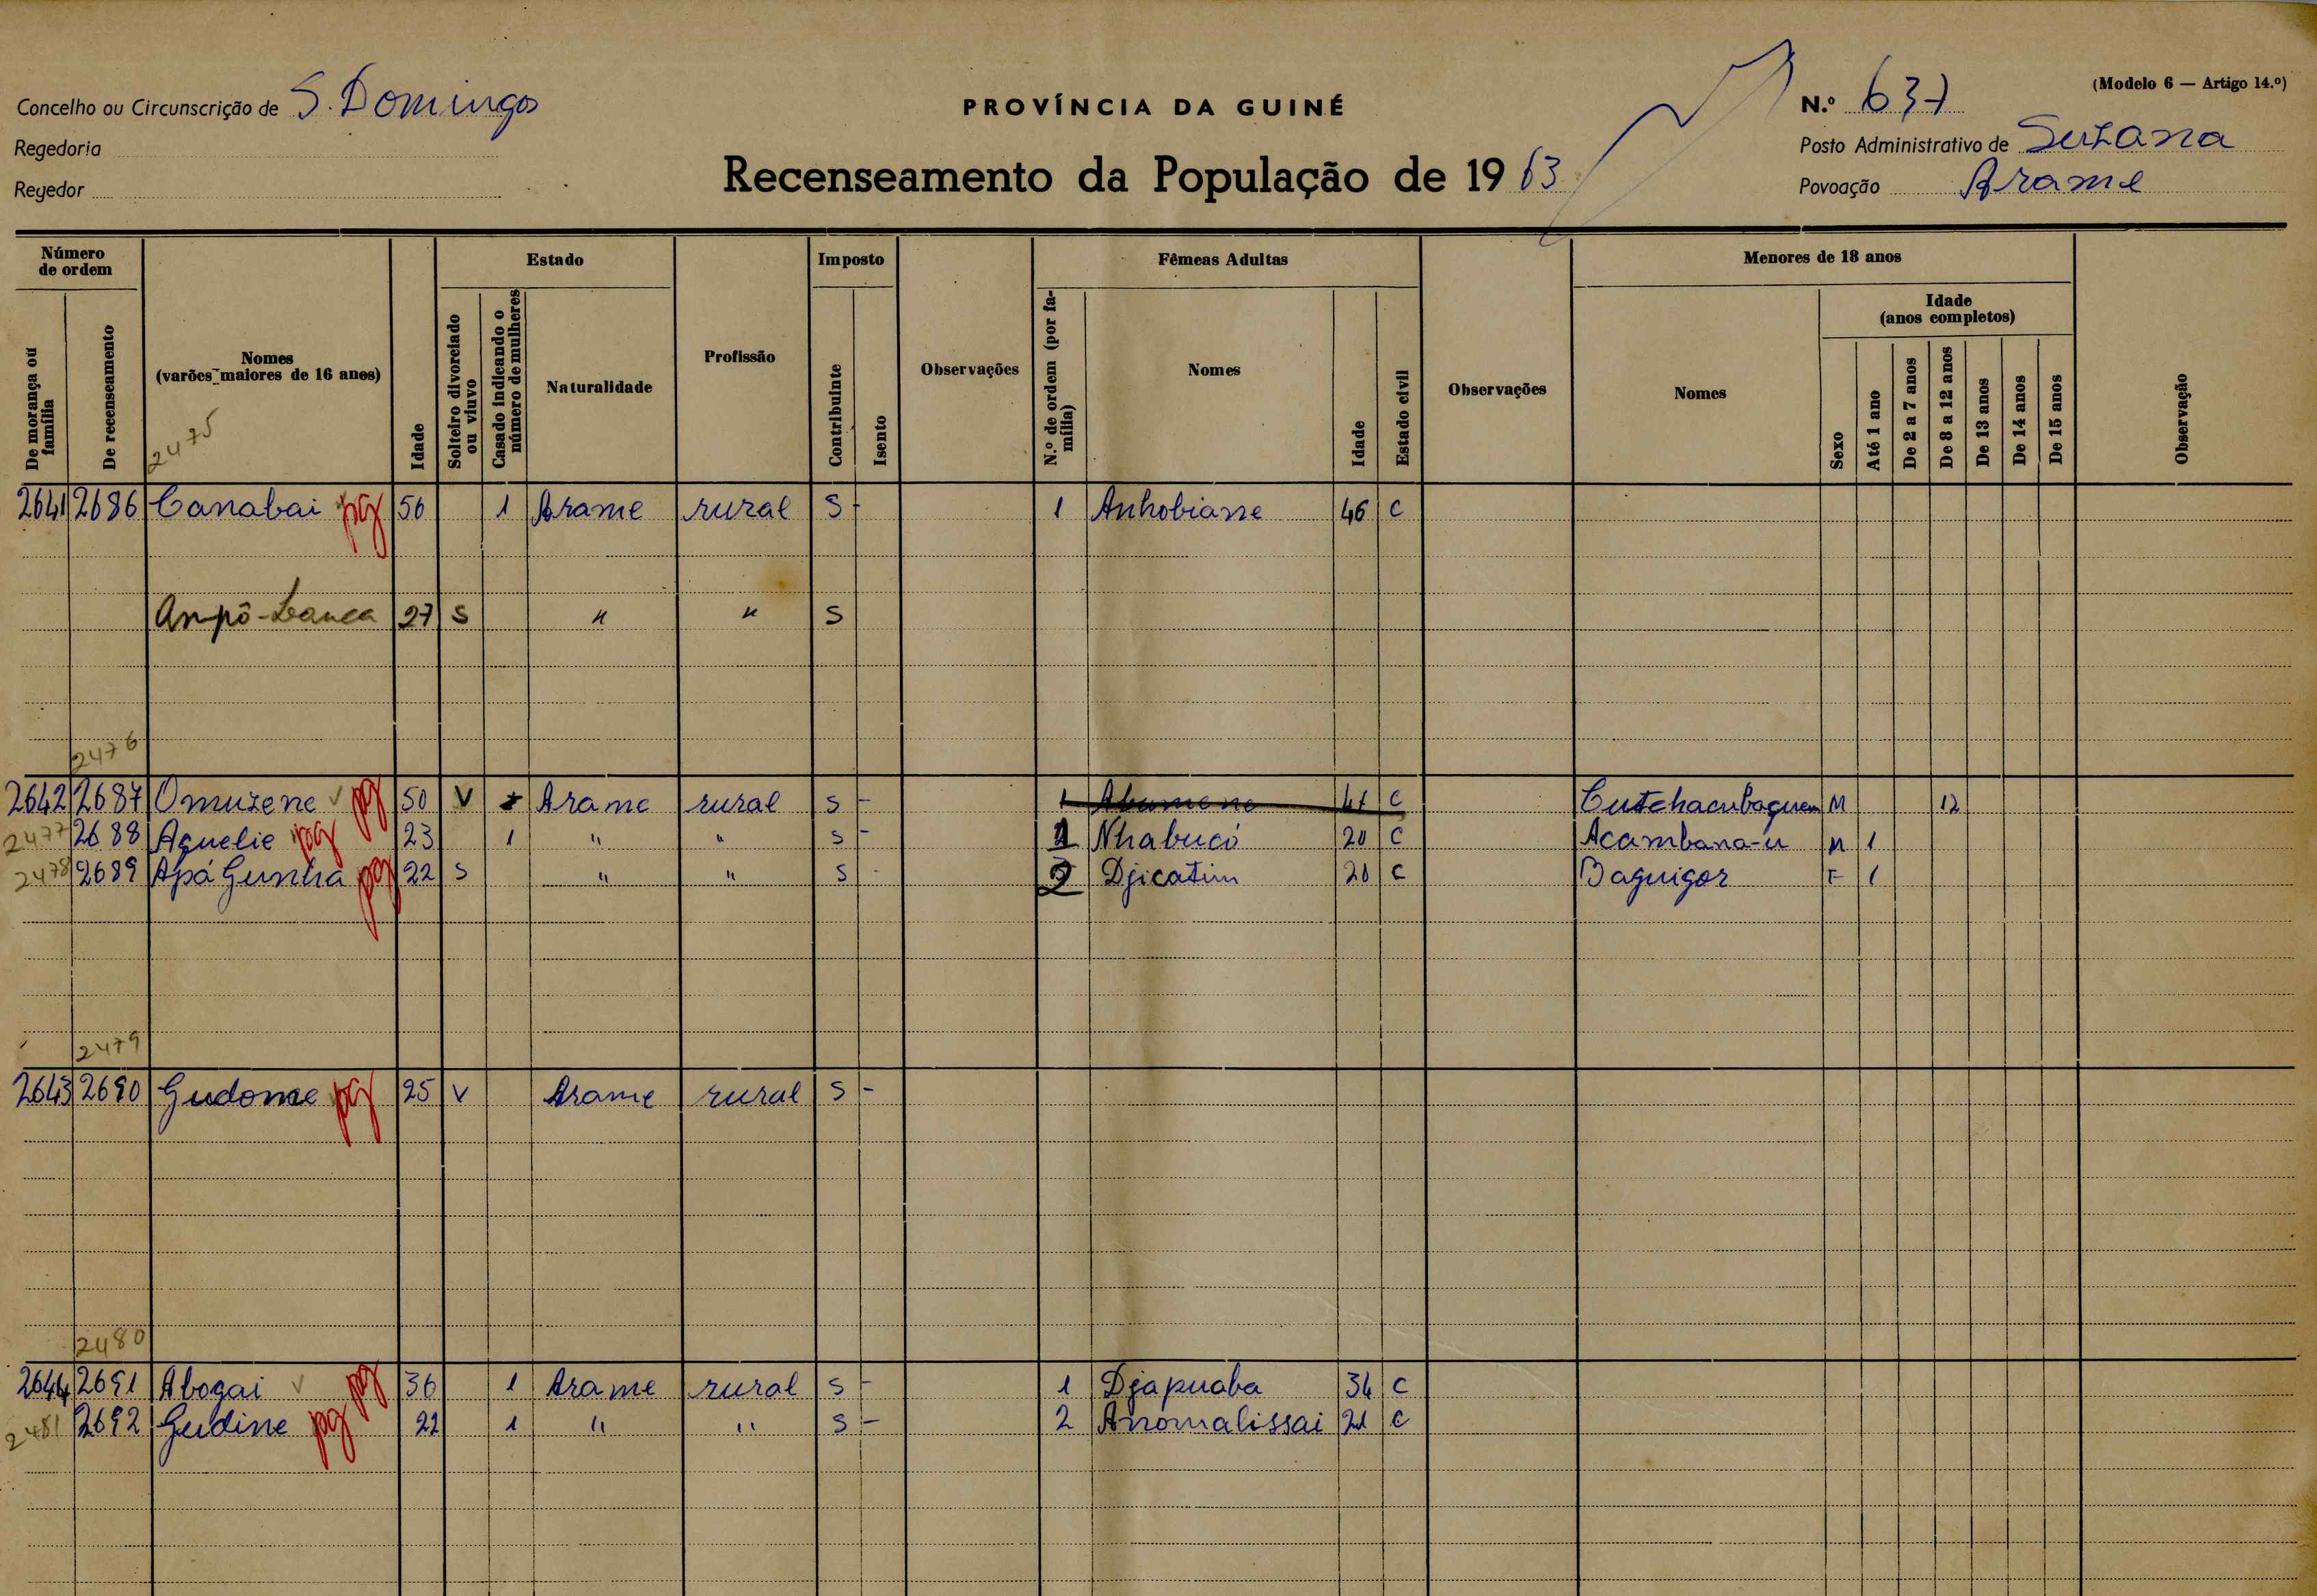 Concelho ou Circunscrição de S. Domingos
Regedoria
Regedor
PROVÍNCIA DA GUINÉ
Recenseamento da População de 19 63
(Modelo 6 — Artigo 14.º)
N.º 637
Posto Administrativo de Suzana
Povoação Arame
Número de ordem
De morança ou família
De recenseamento
Nomes (varões maiores de 16 anos)
2475
Idade
Estado
Solteiro divorciado ou viuvo
Casado indicando o número de mulheres
Naturalidade
Profissão
Imposto
Contribuinte
Isento
Observações
Fêmeas Adultas
N.º de ordem (por família)
Nomes
Idade
Estado civil
Observações
Menores de 18 anos
Nomes
Sexo
Idade (anos completos)
Até 1 ano
De 2 a 7 anos
De 8 a 12 anos
De 13 anos
De 14 anos
De 15 anos
Observação
2641 2686 Canabai pg 56 1 Arame rural S - 1 Anhobianne 46 C
Ampô-Lanca 27 S " " S
2476
2642 2687 Omuzene V pg 50 V Arame rural S - 1 Abumene 47 C Cutchacubaquem M 12
2477 2688 Aquelie pg 23 1 " " S - 1 Nhabucó 20 C Acambana-u M 1
2478 2689 Apá Gunha pg 22 S " " S - 2 Djicatim 20 C Baguigor F 1
2479
2643 2690 Gudome pg 25 V Arame rural S -
2480
2644 2691 Abogai V pg 36 1 Arame rural S - 1 Djapuaba 34 C
2481 2692 Gudine pg 22 1 " " S - 2 Anomalissai 21 C